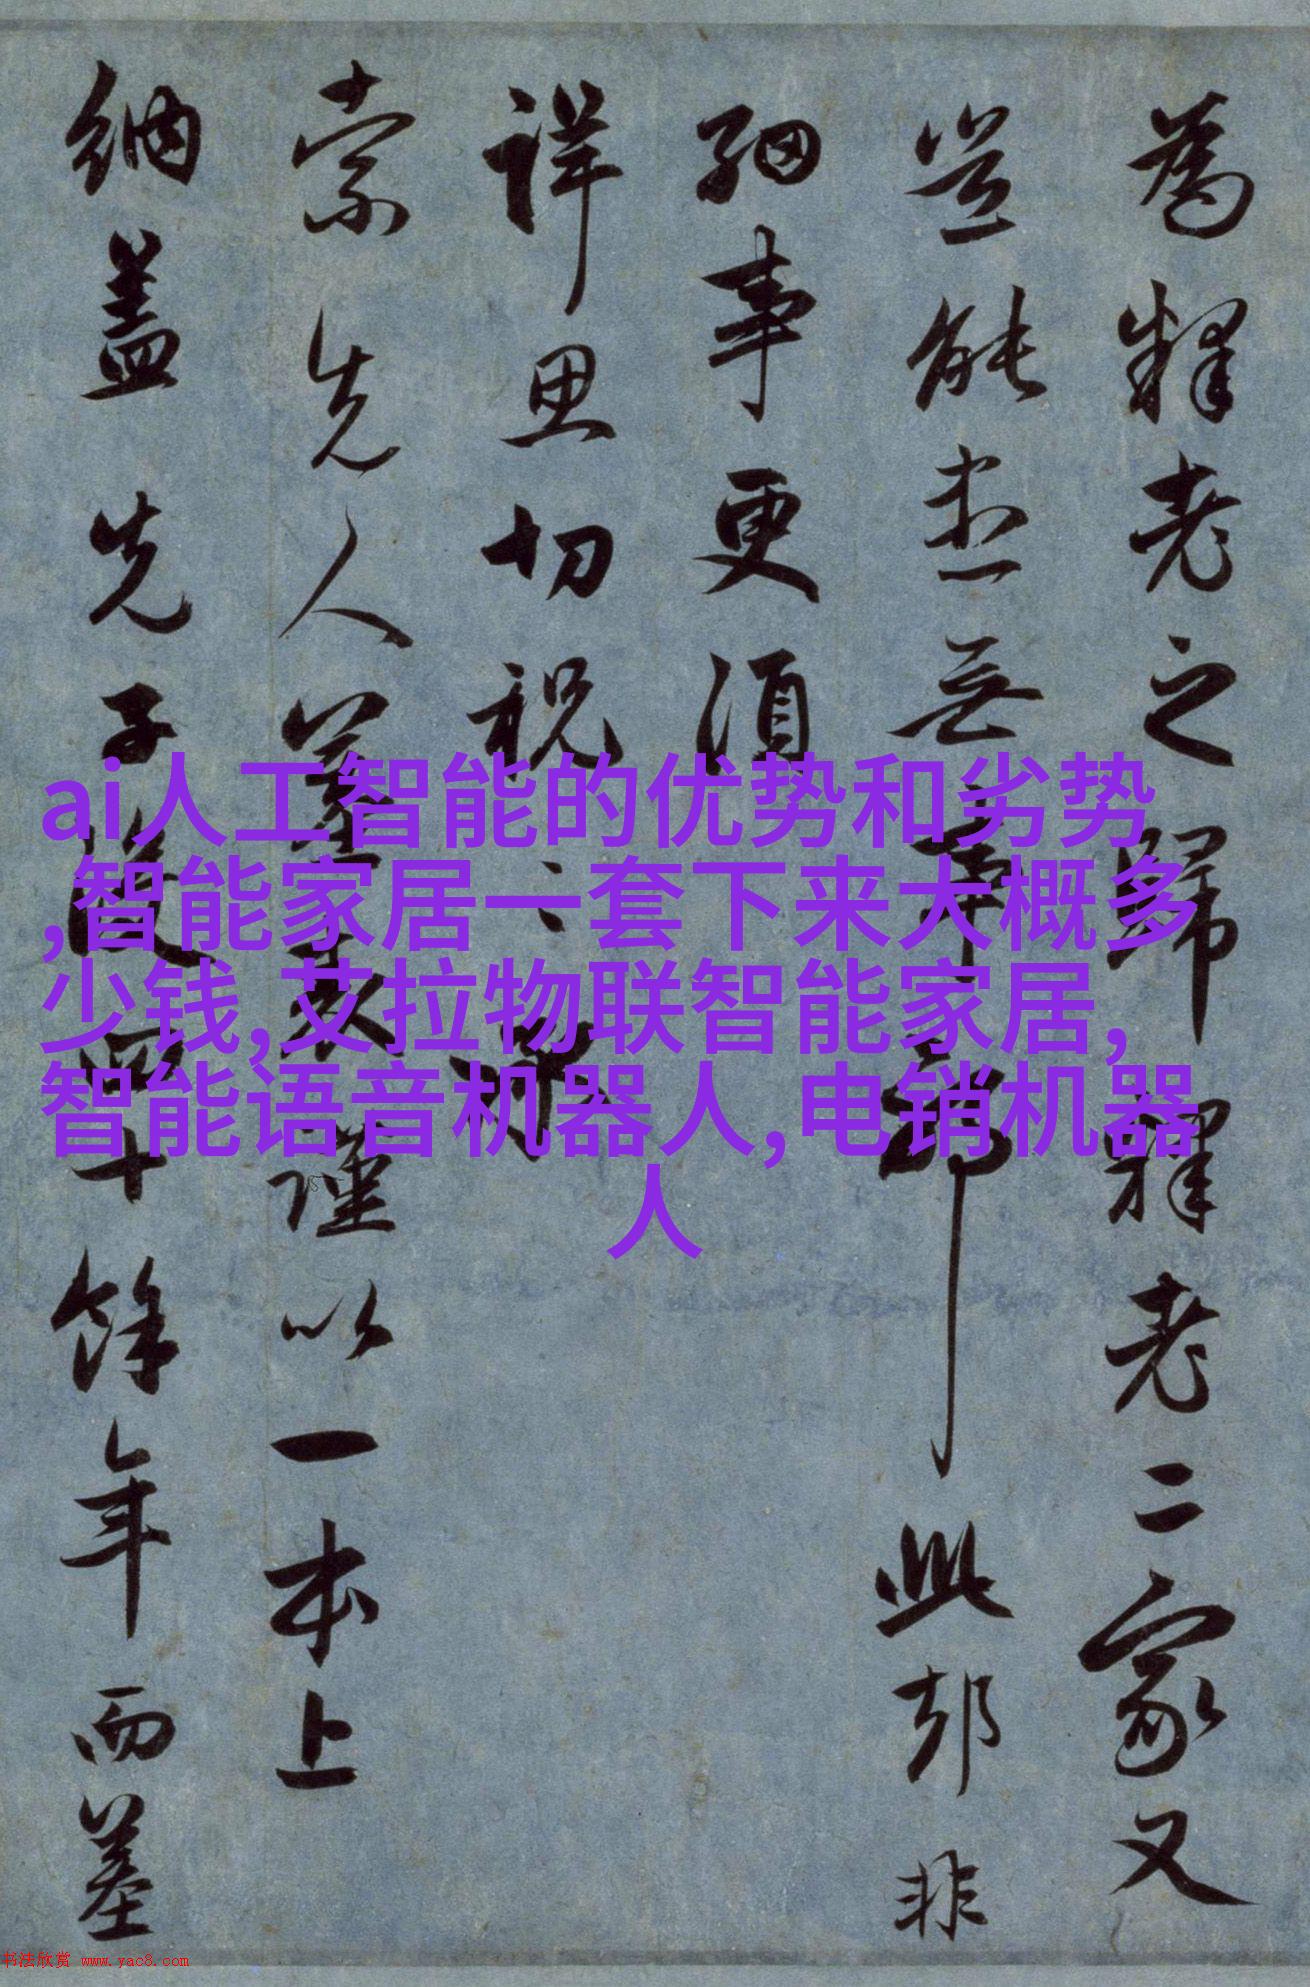 為釋老之歸釋老二家又
豈能盡無事耶此却非
細事更須
詳思切祝
索先人墓表謹以一本上
納蓋先子四十餘年而墓
ai人工智能的优势和劣势
,智能家居一套下来大概多
少钱,艾拉物联智能家居,
智能语音机器人,电销机器
人
书法欣赏 www.yac8.com